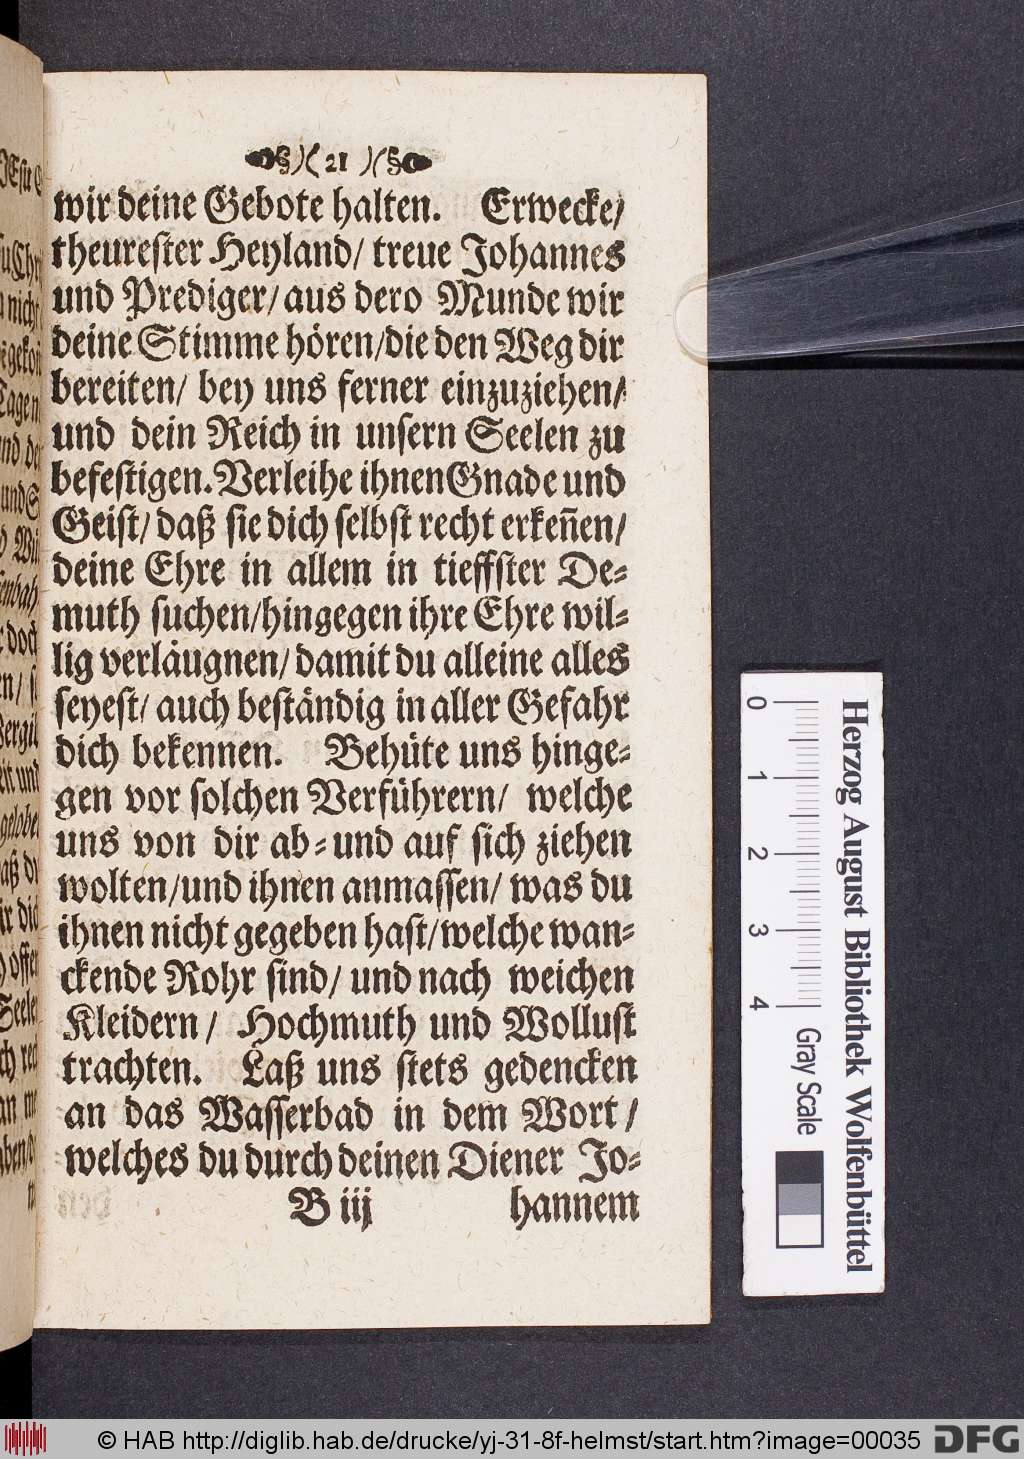 §)( 21 )(§
wir deine Gebote halten. Erwecke/
theurester Heyland/ treue Johannes
und Prediger/ aus dero Munde wir
deine Stimme hören/die den Weg dir
bereiten/ bey uns ferner einzuziehen/
und dein Reich in unsern Seelen zu
befestigen. Verleihe ihnen Gnade und
Geist/ daß sie dich selbst recht erkeñen/
deine Ehre in allem in tieffster De=
muth suchen/hingegen ihre Ehre wil=
lig verläugnen/ damit du alleine alles
seyest/ auch beständig in aller Gefahr
dich bekennen. Behüte uns hinge=
gen vor solchen Verführern/ welche
uns von dir ab= und auf sich ziehen
wolten/und ihnen anmassen/ was du
ihnen nicht gegeben hast/welche wan=
ckende Rohr sind/ und nach weichen
Kleidern/ Hochmuth und Wollust
trachten. Laß uns stets gedencken
an das Wasserbad in dem Wort/
welches du durch deinen Diener Jo=
B iij hannem
0 1 2 3 4
Herzog August Bibliothek Wolfenbüttel
Gray Scale
© HAB http://diglib.hab.de/drucke/yj-31-8f-helmst/start.htm?image=00035
DFG